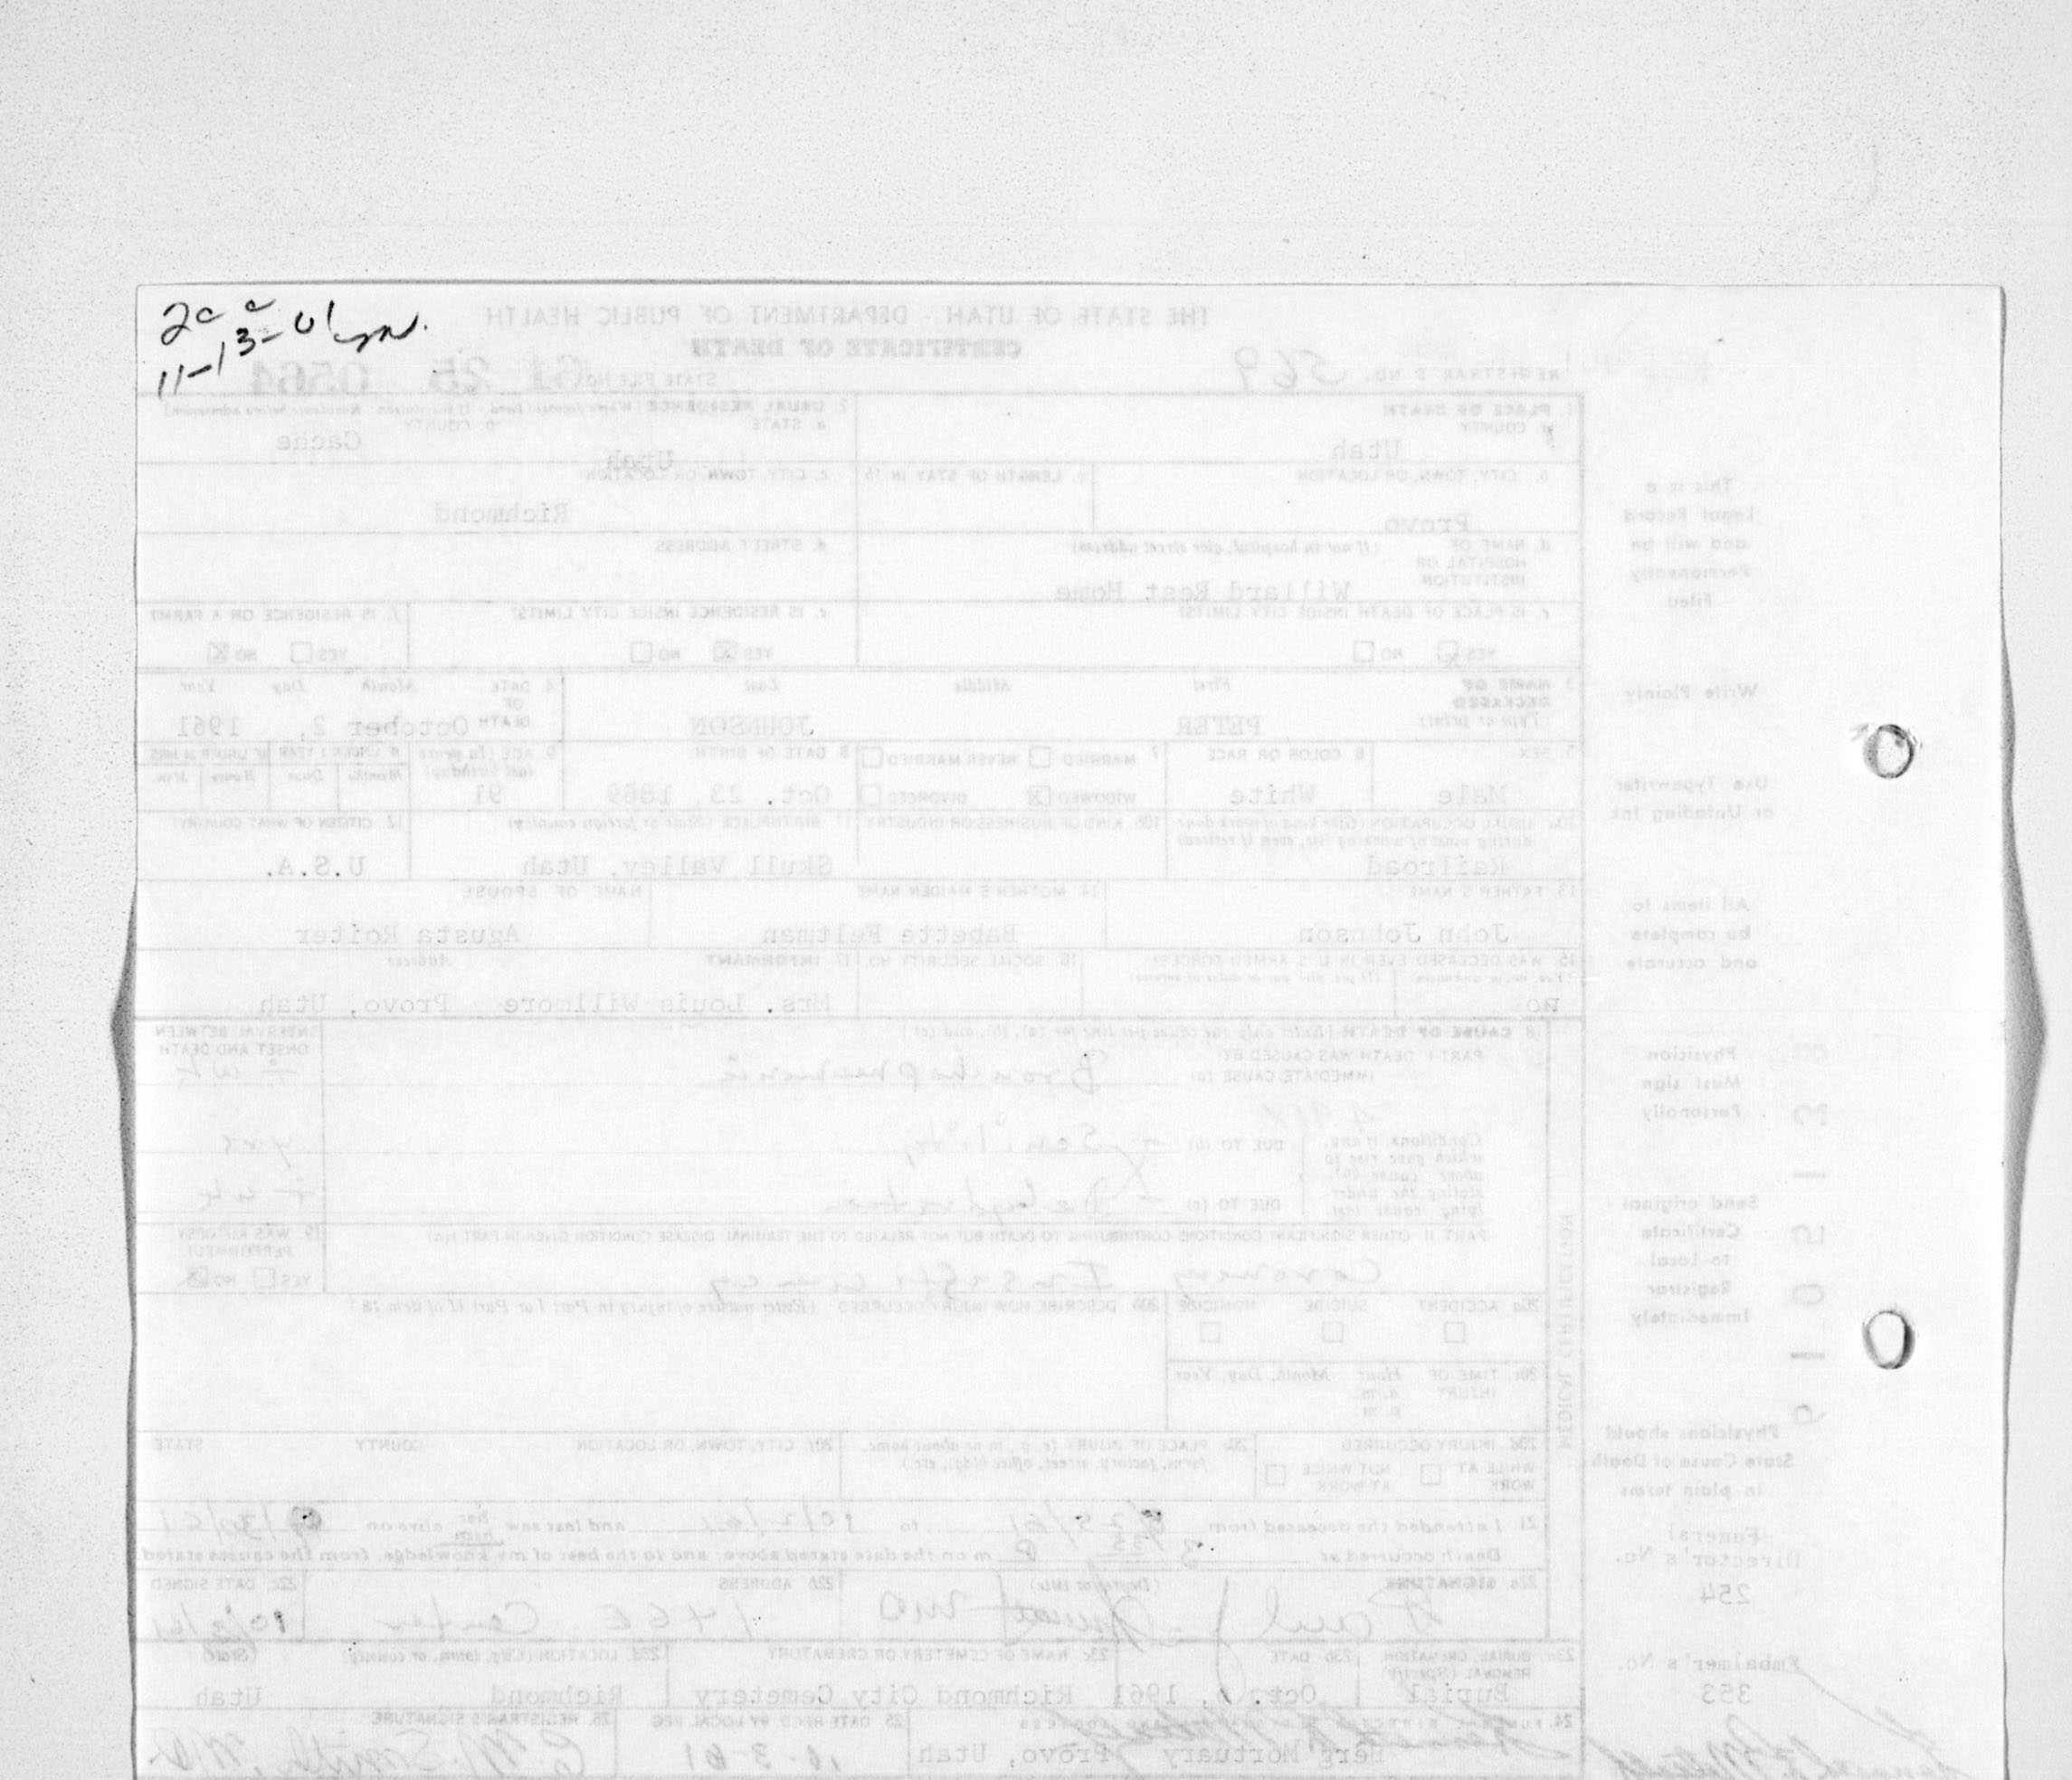 2c
11-13-61
THE STATE OF UTAH - DEPARTMENT OF PUBLIC HEALTH
CERTIFICATE OF DEATH
REGISTRAR'S NO. 569 STATE FILE NO. 61 25 0564
1. PLACE OF DEATH
a. COUNTY
Utah
2. USUAL RESIDENCE (Where deceased lived. If institution: Residence before admission)
a. STATE
Utah
b. COUNTY
Cache
b. CITY, TOWN, OR LOCATION
Provo
c. LENGTH OF STAY IN 1b
c. CITY, TOWN, OR LOCATION
Richmond
d. NAME OF HOSPITAL OR INSTITUTION (If not in hospital, give street address)
Willard Rest Home
d. STREET ADDRESS
e. IS PLACE OF DEATH INSIDE CITY LIMITS?
YES NO
e. IS RESIDENCE INSIDE CITY LIMITS?
YES NO
f. IS RESIDENCE ON A FARM?
YES NO
3. NAME OF DECEASED (Type or print)
First Middle Last
PETER JOHNSON
4. DATE OF DEATH
Month Day Year
October 2, 1961
5. SEX
Male
6. COLOR OR RACE
White
7. MARRIED NEVER MARRIED
WIDOWED DIVORCED
8. DATE OF BIRTH
Oct. 23, 1869
9. AGE (In years last birthday)
91
IF UNDER 1 YEAR IF UNDER 24 HRS
Months Days Hours Min.
10a. USUAL OCCUPATION (Give kind of work done during most of working life, even if retired)
Railroad
10b. KIND OF BUSINESS OR INDUSTRY
11. BIRTHPLACE (State or foreign country)
Skull Valley, Utah
12. CITIZEN OF WHAT COUNTRY?
U.S.A.
13. FATHER'S NAME
John Johnson
14. MOTHER'S MAIDEN NAME
Babette Feltman
NAME OF SPOUSE
Agusta Roiter
15. WAS DECEASED EVER IN U.S. ARMED FORCES?
no
16. SOCIAL SECURITY NO.
17. INFORMANT Address
Mrs. Louis Willmore, Provo, Utah
18. CAUSE OF DEATH (Enter only one cause per line for (a), (b), and (c).)
INTERVAL BETWEEN ONSET AND DEATH
PART I. DEATH WAS CAUSED BY:
IMMEDIATE CAUSE (a) Bronchopneumonia
Conditions, if any, which gave rise to above cause (a), stating the underlying cause last.
DUE TO (b) Senility yrs
DUE TO (c) Dehydration
PART II. OTHER SIGNIFICANT CONDITIONS CONTRIBUTING TO DEATH BUT NOT RELATED TO THE TERMINAL DISEASE CONDITION GIVEN IN PART I(a)
Coronary Insufficiency
19. WAS AUTOPSY PERFORMED?
YES NO
20a. ACCIDENT SUICIDE HOMICIDE
20b. DESCRIBE HOW INJURY OCCURRED. (Enter nature of injury in Part I or Part II of item 18.)
20c. TIME OF INJURY Hour Month, Day, Year
a.m.
p.m.
20d. INJURY OCCURRED
WHILE AT WORK NOT WHILE AT WORK
20e. PLACE OF INJURY (e.g., in or about home, farm, factory, street, office bldg., etc.)
20f. CITY, TOWN, OR LOCATION COUNTY STATE
21. I attended the deceased from to 10/2/61 and last saw her him alive on
Death occurred at m on the date stated above, and to the best of my knowledge, from the causes stated.
22a. SIGNATURE (Degree or title)
Paul MD
22b. ADDRESS
146 E. Center
22c. DATE SIGNED
23a. BURIAL, CREMATION, REMOVAL (Specify)
Burial
23b. DATE
Oct. 6, 1961
23c. NAME OF CEMETERY OR CREMATORY
Richmond City Cemetery
23d. LOCATION (City, town, or county) (State)
Richmond Utah
24. FUNERAL DIRECTOR
Berg Mortuary Provo, Utah
25. DATE REC'D BY LOCAL REG.
10-3-61
26. REGISTRAR'S SIGNATURE
Smith, M.D.
This is a
Legal Record
and will be
Permanently
Filed
Write Plainly
Use Typewriter
or Unfading Ink
All items to
be complete
and accurate
Physician
Must sign
Personally
Send original
Certificate
to Local
Registrar
Immediately
Physicians should
State Cause of Death
in plain terms
Funeral
Director's No.
254
Embalmer's No.
353
MEDICAL CERTIFICATION